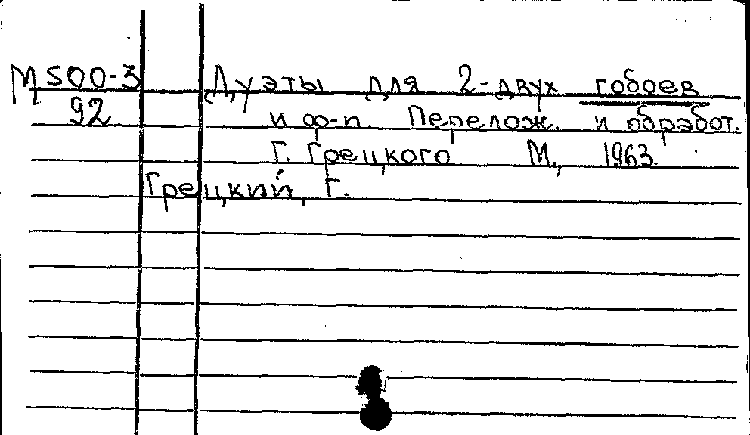 М 500-3 Дуэты для 2-двух гобоев
92 и ф-п. Перелож. и обработ.
Г. Грецкого М., 1963.
Грецкий, Г.